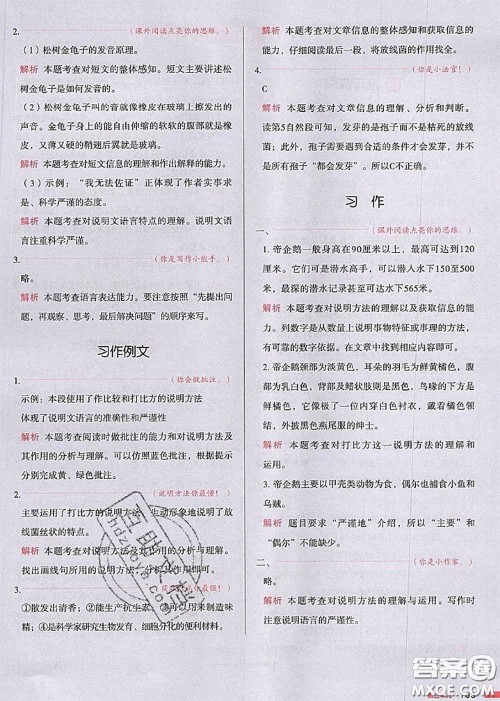 2.
（课外阅读点亮你的思维。）
（1）松树金龟子的发音原理。
解析 本题考查对短文的整体感知。短文主要讲述松
树金龟子是如何发音的。
（2）松树金龟子叫的音就像橡皮在玻璃上擦发出的
声音。金龟子身上的能自由伸缩的软软的腹部就是橡
皮，又薄又硬的鞘翅后翼就是玻璃。
解析 本题考查对短文信息的理解和作出解释的能力。
（3）示例：“我无法佐证”正体现了作者实事求
是、科学严谨的态度。
解析 本题考查对说明文语言特点的理解。说明文语
言注重科学严谨。
3.
（你是写作小能手。）
略。
解析 本题考查语言表达能力。要注意按照“先提出问
题，再观察、思考，最后解决问题”的写作顺序。
习作例文
1.
（你会做批注。）
示例：本段使用了作比较和打比方的说明方法
体现了说明文语言的准确性和严谨性
解析 本题考查阅读时做批注的能力和对说明方法及
其作用的分析与理解。可以仿照蓝色批注，根据提示
分别完成黄、绿色批注。
2.
（说明方法你最懂！）
主要运用了打比方的说明方法，生动形象地说明了放
线菌丝状的特点。
解析 本题考查对说明方法及其作用的分析与理解。
找出画线句所用的说明方法，并根据所用的说明方法
3.
①散发出清香；②能生产抗生素；③可以用来制造味
精；④是科学家研究生物发育、细胞分化的便利材料。
解析 本题考查对文章信息的整体感知和获取信息的
能力，仔细阅读最后一段，将放线菌的作用找出来。
4.
（你是小法官！）
C
解析 本题考查对文章信息的理解、分析和判断。
读第5自然段可知，发芽的是孢子而不是枯死的放线
菌；孢子遇到适合的条件才会发芽，并不是
所有孢子“都会发芽”。所以C不正确。
习 作
一、
（课外阅读点亮你的思维。）
1. 帝企鹅一般身高在90厘米以上，最高可达到120
厘米；它们的潜水高手，可以潜入水下150至500
米，最深的潜水记录甚至可达水下565米。
解析 本题考查对说明方法的理解以及获取信息的能
力。列数字是从数量上说明事物特征或事理的方法，
有数字体现，在文章中找到相关句子即可。
2. 帝企鹅颈部为淡黄色，耳朵的羽毛为鲜黄橘色，腹
部为乳白色，背部及鳍状肢为黑色，鸟喙的下方是
鲜橘色，它们像一位内穿白色衬衣、戴着鲜橘色领
结、外披黑色燕尾服的绅士。
解析 本题考查对打比方这一说明方法的理解和
运用。
3. 帝企鹅主要以甲壳类动物为食，偶尔也捕食小鱼和
乌贼。
解析 题目要求“严谨地”介绍，所以“主要”和
“偶尔”不能缺少。
二、
（你是小作家。）
略。
解析 本题考查对说明方法的理解与运用。写作时
注意说明语言的严谨性。
答案圈
MXQE.COM